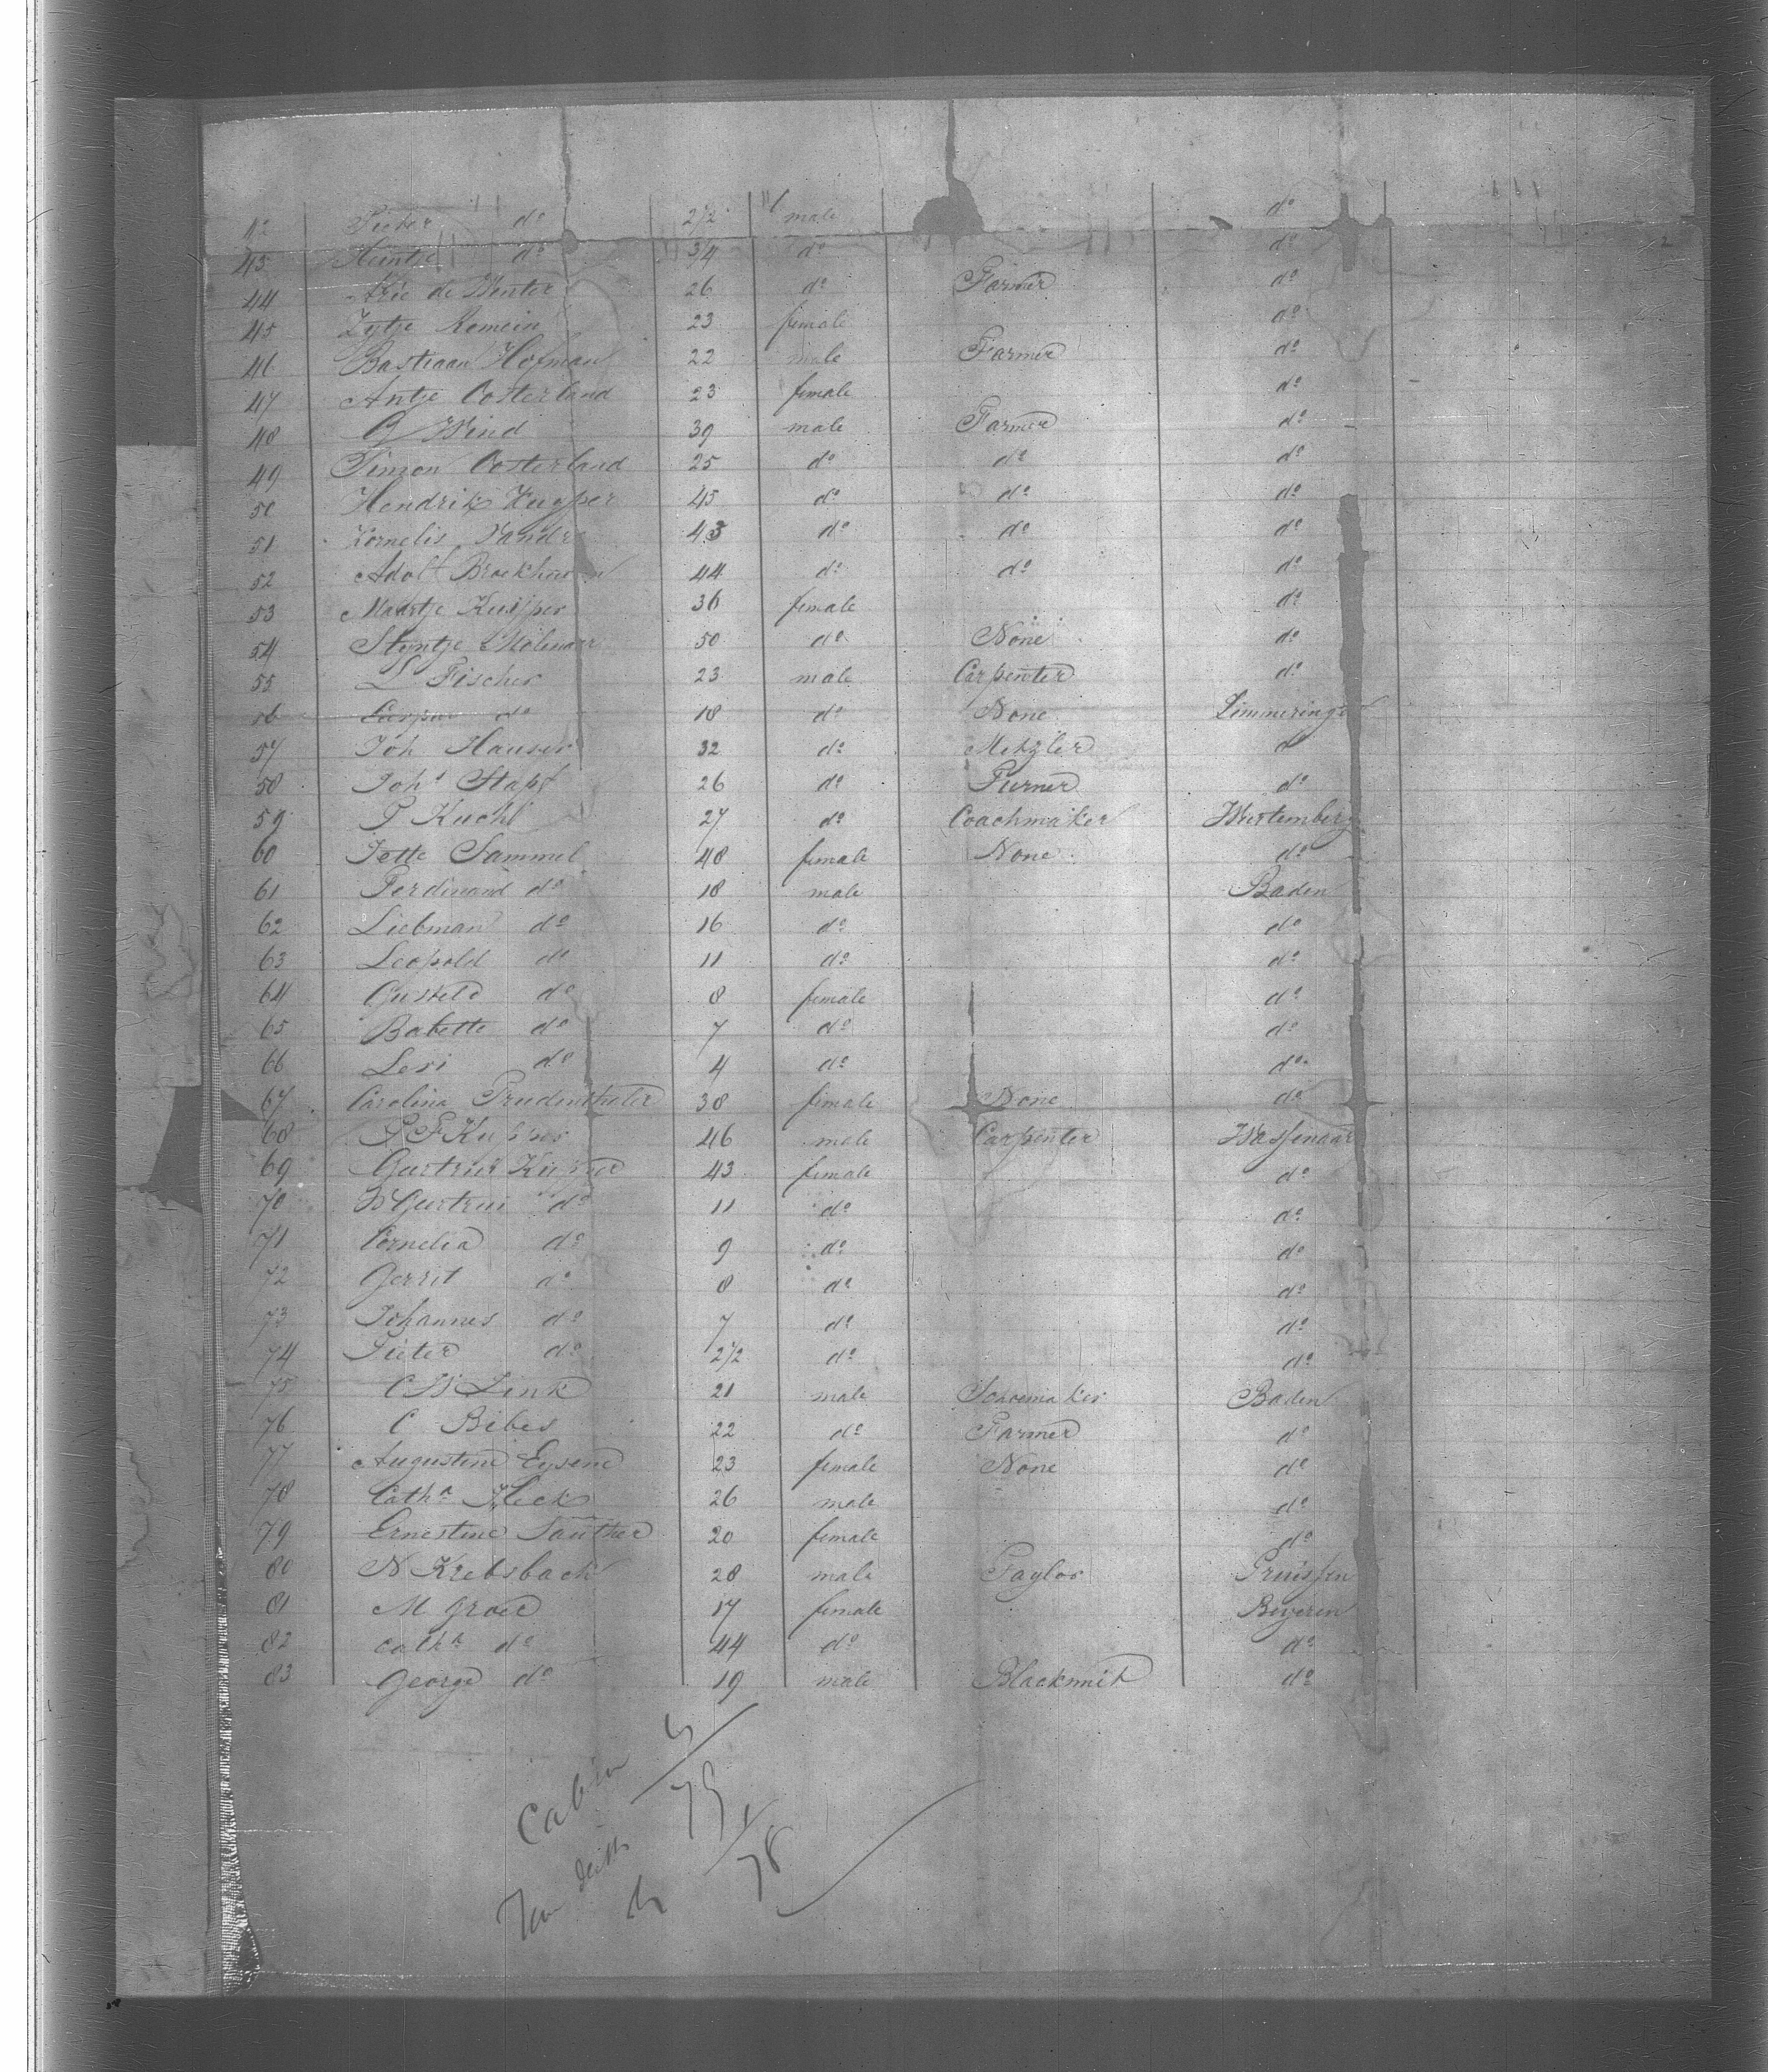 42 Pieter do 2 1/2 male do
43 Heintje do 3/4 do do
44 Arie de Winter 26 do Farmer do
45 Zytje Romein 23 female do
46 Bastiaan Hofman 22 male Farmer do
47 Antje Oosterland 23 female do
48 Wind 39 male Farmer do
49 Simon Oosterland 25 do do do
50 Hendrik Kuyper 45 do do do
51 Kornelis 43 do do do
52 Adolf 44 do do do
53 Maartje Kuijper 36 female do
54 Styntje Molenaar 50 do None do
55 L Fischer 23 male Carpenter do
56 do 18 do None Simmeringe
57 Joh Hauser 32 do Metzler do
58 Johs Stapf 26 do Turner do
59 P Kuchl 27 do Coachmaker Wurtemberg
60 Jette Sammel 48 female None do
61 Ferdinand do 18 male Baden
62 Liebman do 16 do do
63 Leopold do 11 do do
64 Gustele do 8 female do
65 Babette do 7 do do
66 do 4 do do
67 Carolina 38 female None do
68 46 male Carpenter Wassenaar
69 Geertrui Kuyper 43 female do
70 Geertrui do 11 do do
71 Cornelia do 9 do do
72 Gerrit do 8 do do
73 Johannes do 7 do do
74 Pieter do 2 1/2 do do
75 C W Link 21 male Schoemaker Baden
76 C Bibes 22 do Farmer do
77 Augustine Eysene 23 female None do
78 Catha Heck 26 male do
79 Ernestine Sauther 20 female do
80 N Krebsbach 28 male Taylor Pruissen
81 M Groee 17 female Beyeren
82 Catha do 44 do do
83 George do 19 male Blacksmit do
Cabin 4
79
1
78